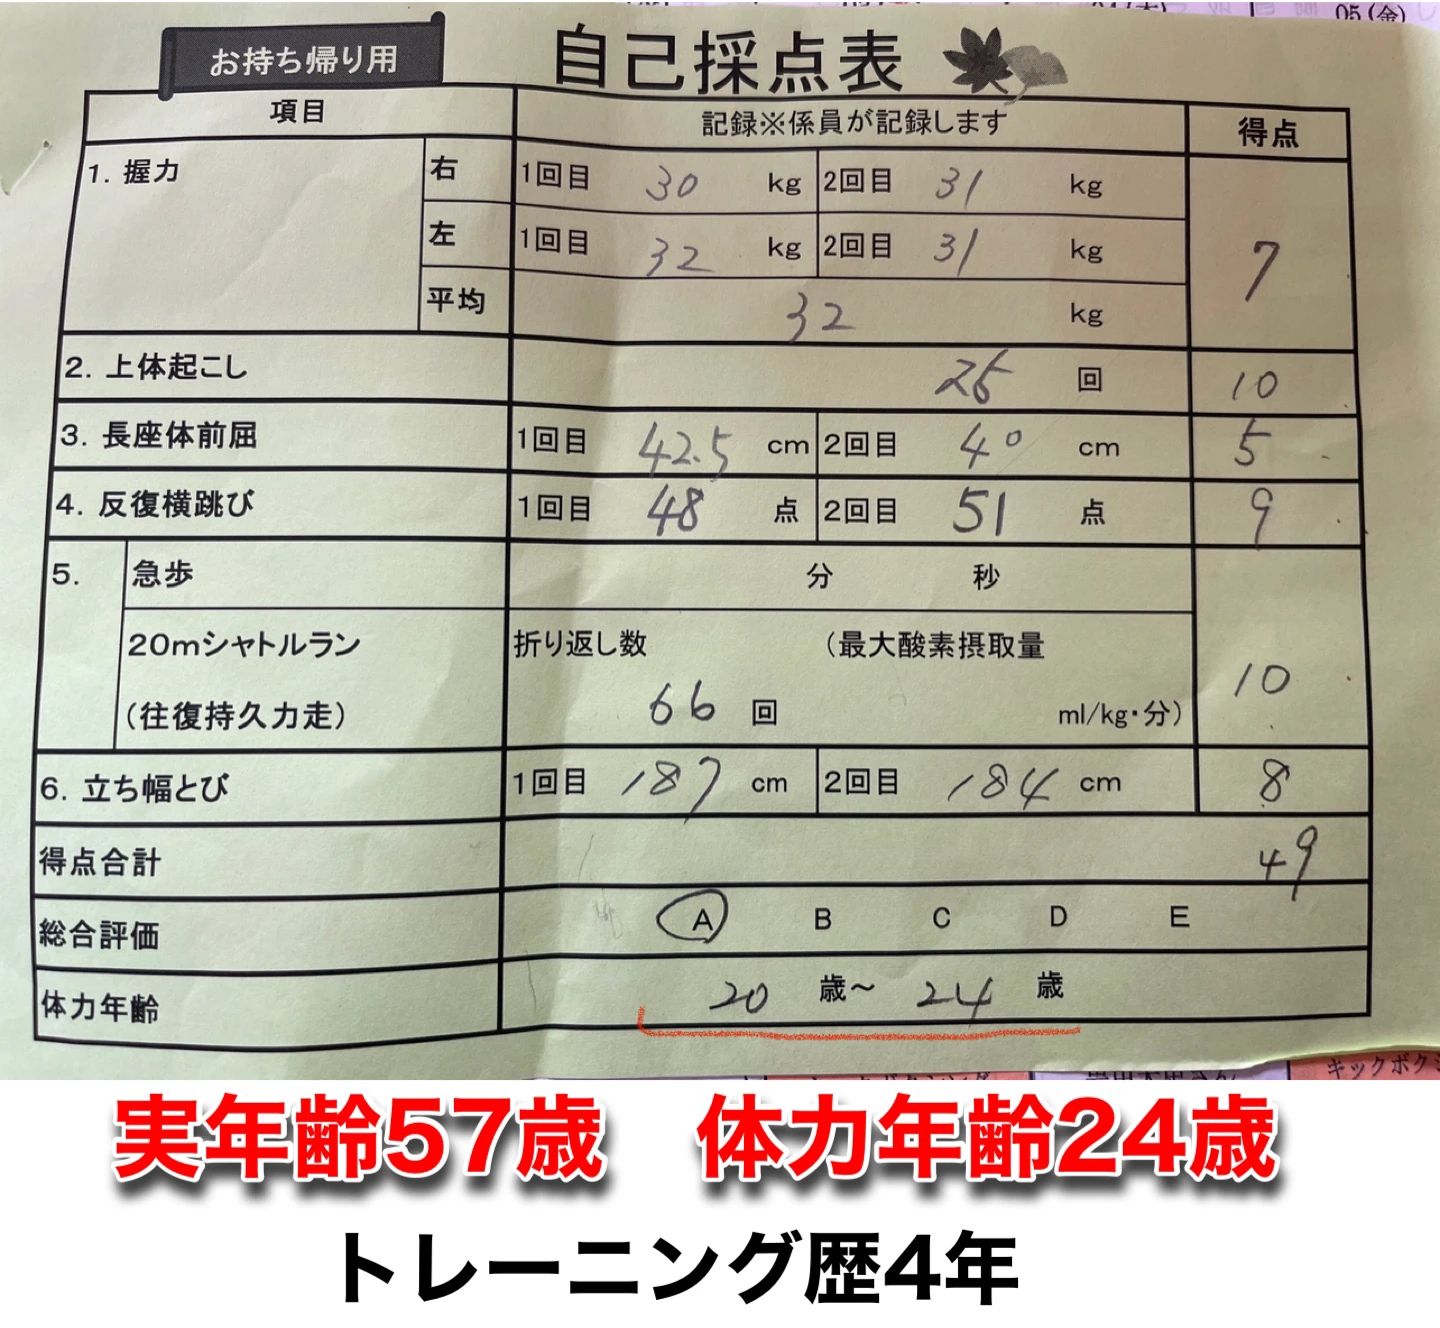 05(金)
お持ち帰り用
自己採点表
項目 記録※係員が記録します 得点
1. 握力 右 1回目 30 kg 2回目 31 kg
左 1回目 32 kg 2回目 31 kg 7
平均 32 kg
2. 上体起こし 25 回 10
3. 長座体前屈 1回目 42.5 cm 2回目 40 cm 5
4. 反復横跳び 1回目 48 点 2回目 51 点 9
5. 急歩 分 秒
20mシャトルラン 折り返し数 (最大酸素摂取量
(往復持久力走) 66 回 ml/kg・分) 10
6. 立ち幅とび 1回目 187 cm 2回目 184 cm 8
得点合計 49
総合評価 A B C D E
体力年齢 20 歳～ 24 歳
キックボクシ
実年齢57歳 体力年齢24歳
トレーニング歴4年